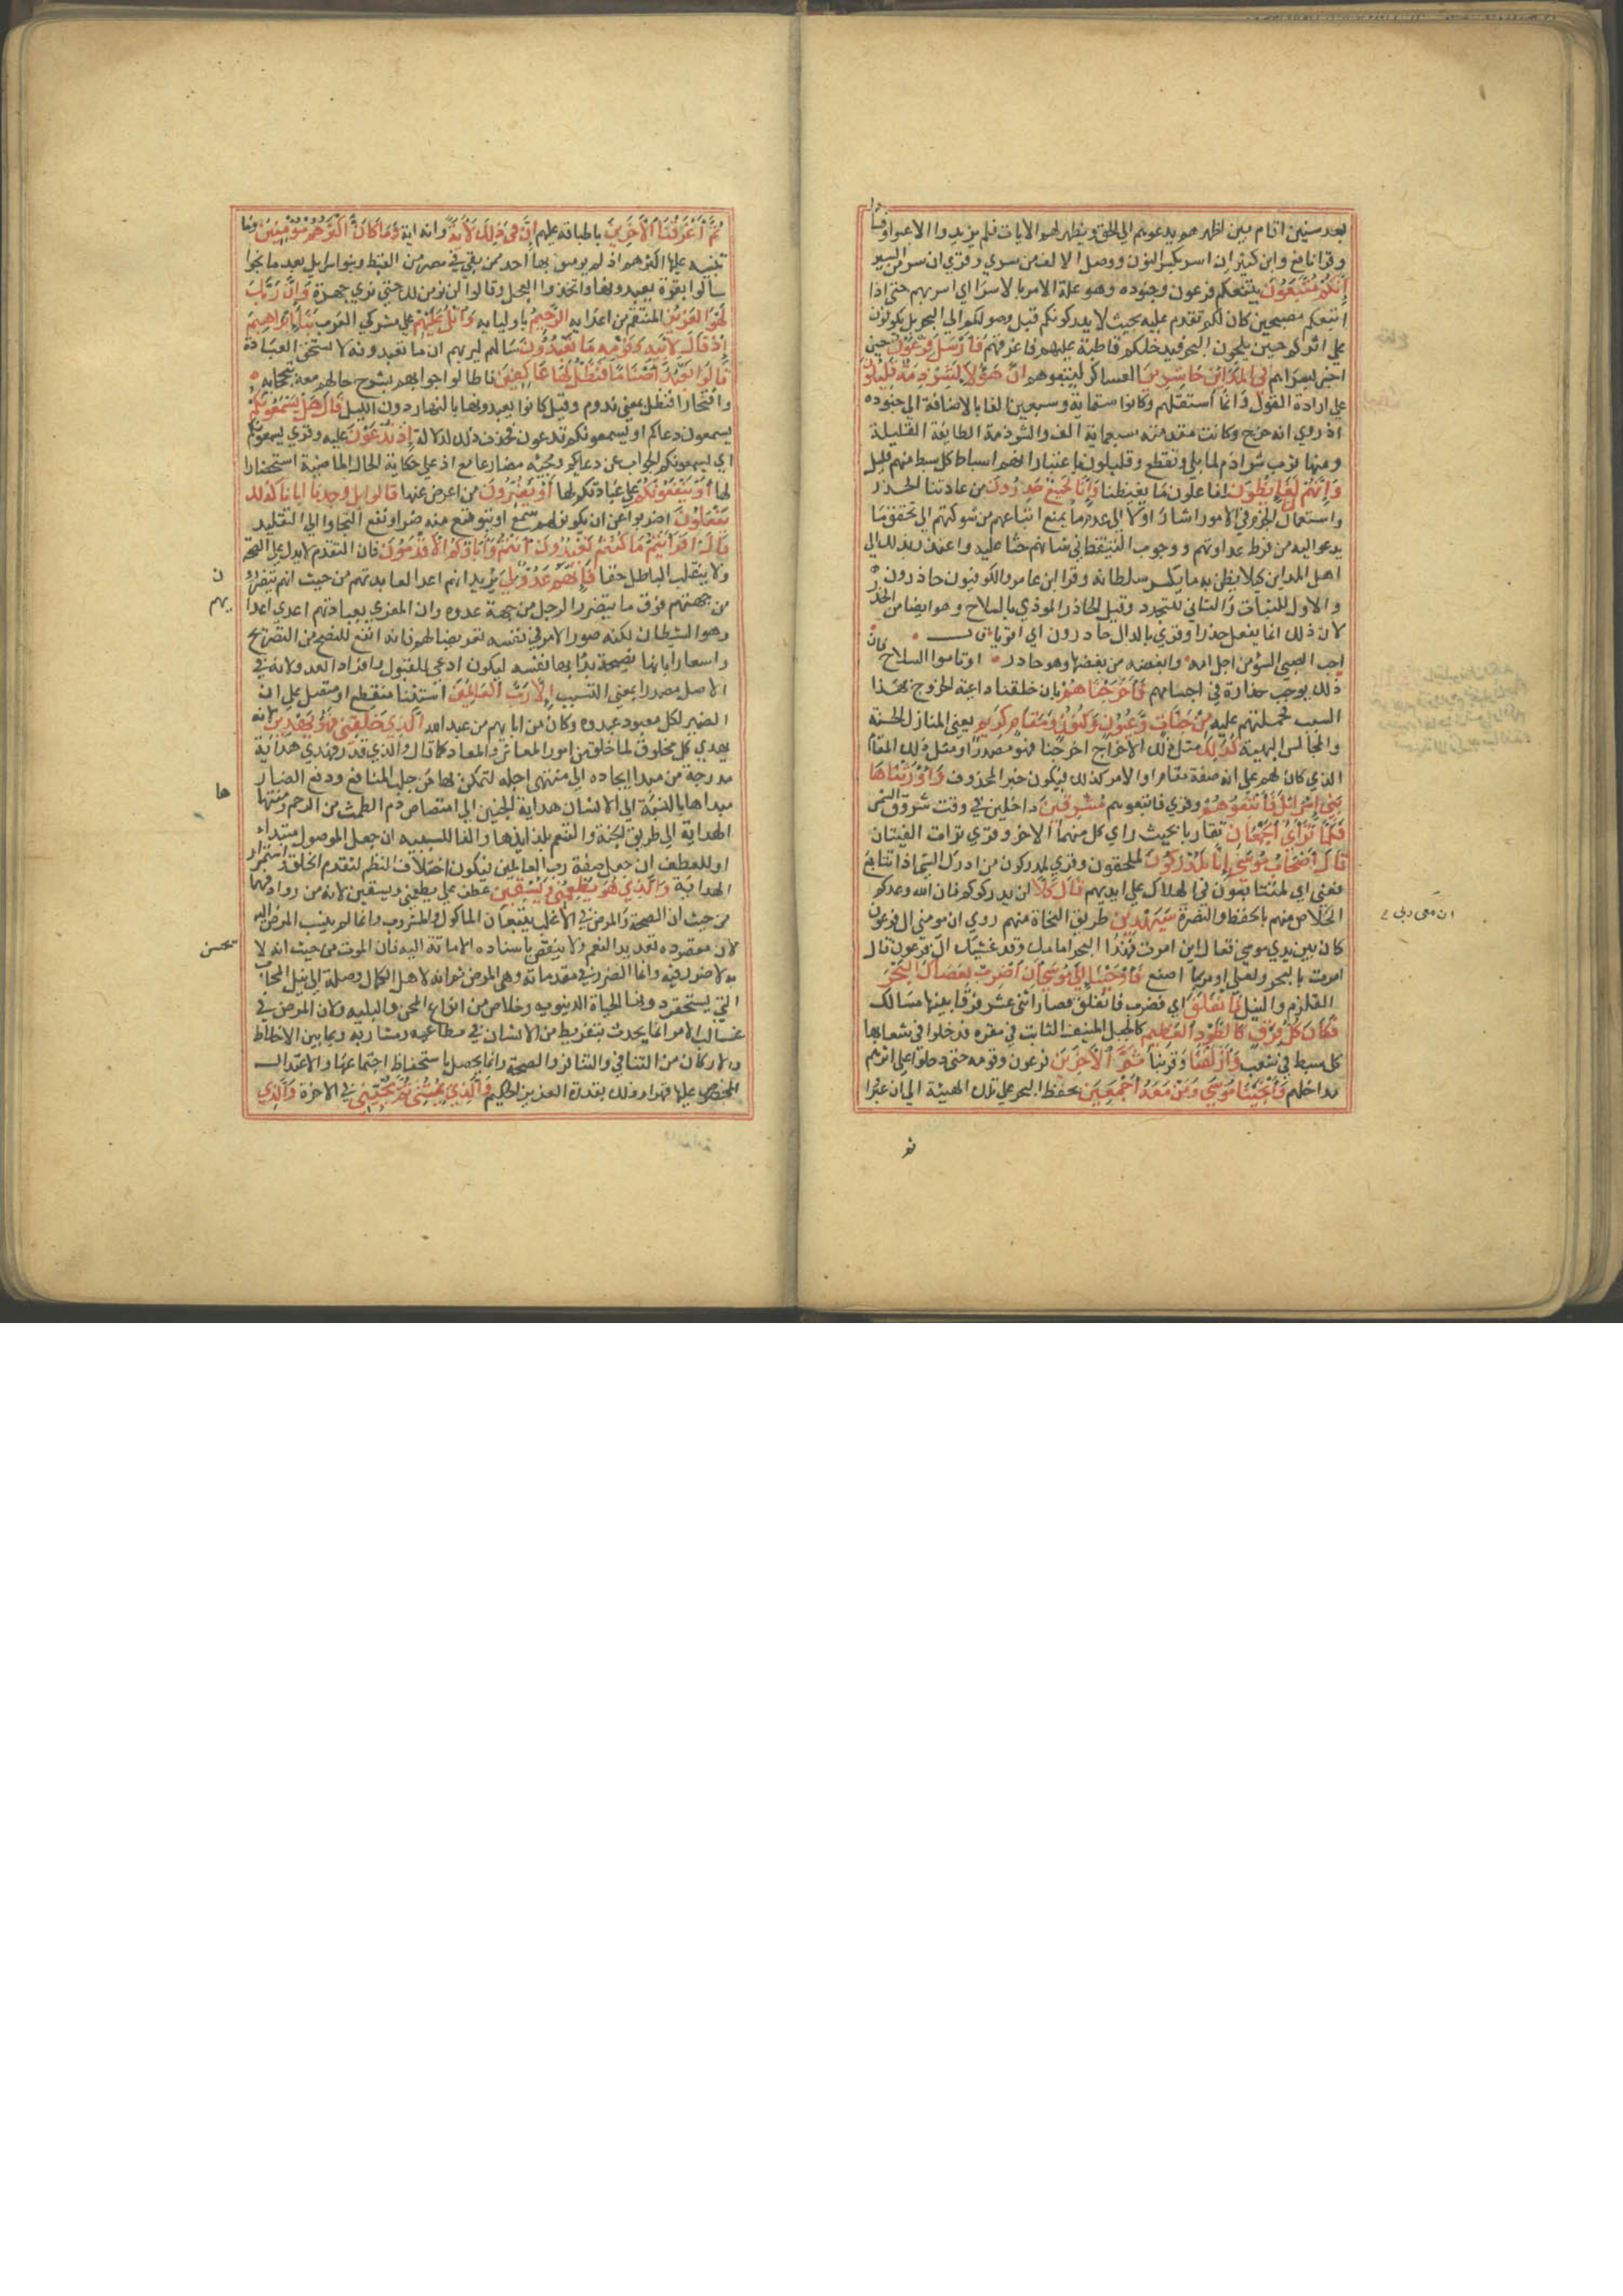 بعد سنين اقام بين اظهرهم يدعوهم الى الحق ويظهر لهم الايات فلم يزيدوا الا عتوا وفسادا
وقرا نافع وابن كثير ان اسر بكسر النون ووصل الالف من سري وقري ان سر من السير
إِنَّكُمْ مُتَّبَعُونَ يتبعكم فرعون وجنوده وهو علة الامر بالاسرا اي اسر بهم حتى اذا
اتبعكم مصبحين كان لكم تقدم عليه بحيث لا يدركونكم قبل وصولكم الى البحر بل يكونون
على اثركم حين تلجون البحر فيدخلكم فاطبقه عليهم فاغرقهم فَأَرْسَلَ فِرْعَوْنُ حين
اخبر بسراهم فِي الْمَدَائِنِ حَاشِرِينَ العساكر ليتبعوهم إِنَّ هَؤُلَاءِ لَشِرْذِمَةٌ قَلِيلُونَ
على ارادة القول وانما استقلهم وكانوا ستماية وسبعين الفا بالاضافة الى جنوده
اذ روي انه خرج وكانت مقدمته سبعماية الف والشرذمة الطايفة القليلة
ومنها ثوب شراذم لما بلي وتقطع وقليلون باعتبار انهم اسباط كل سبط منهم قليل
وَإِنَّهُمْ لَنَا لَغَائِظُونَ لفاعلون ما يغيظنا وَإِنَّا لَجَمِيعٌ حَذِرُونَ من عادتنا الحذر
واستعمال الحزم في الامور اشار اولا الى عدم ما يمنع اتباعهم من شوكتهم الى تحقق ما
يدعو اليه من فرط عداوتهم ووجوب التيقظ في شانهم حثا عليه واعتذر بذلك الى
اهل المداين كيلا يظن به ما يكسر سلطانه وقرا ابن عامر والكوفيون حاذرون
والاول للثبات والثاني للتجدد وقيل الحاذر المودي بالسلاح وهو ايضا من الحذر
لان ذلك انما يفعل حذرا وقري بالدال حادرون اي اقويا
احب الصبي السوء من اجل امه وابغضه من بغضها وهو حادر او تاموا السلاح فان
ذلك يوجب حدارة في اجسامهم فَأَخْرَجْنَاهُمْ بان خلقنا داعية الخروج بهذا
السبب فحملتهم عليه مِنْ جَنَّاتٍ وَعُيُونٍ وَكُنُوزٍ وَمَقَامٍ كَرِيمٍ يعني المنازل الحسنة
والمجالس البهية كَذَلِكَ مثل ذلك الاخراج اخرجنا فهو مصدر او مثل ذلك المقام
الذي كان لهم على انه صفة مقام او الامر كذلك فيكون خبر المحذوف وَأَوْرَثْنَاهَا
بَنِي إِسْرَائِيلَ فَأَتْبَعُوهُمْ وقري فاتبعوهم مُشْرِقِينَ داخلين في وقت شروق الشمس
فَلَمَّا تَرَاءَى الْجَمْعَانِ تقاربا بحيث راى كل منهما الاخر وقري تراءت الفئتان
قَالَ أَصْحَابُ مُوسَى إِنَّا لَمُدْرَكُونَ لملحقون وقري لمدركون من ادرك الشي اذا تتابع
ففني اي لمتتابعون في الهلاك على ايديهم قَالَ كَلَّا لن يدركوكم فان الله وعدكم
الخلاص منهم بالحفظ والنصرة سَيَهْدِينِ طريق النجاة منهم روي ان مومن ال فرعون
كان بين يدي موسى فقال اين امرت فهذا البحر امامك وقد غشيك ال فرعون قال
امرت بالبحر ولعلي اومر بما اصنع فَأَوْحَيْنَا إِلَى مُوسَى أَنِ اضْرِبْ بِعَصَاكَ الْبَحْرَ
القلزم والنيل فَانْفَلَقَ اي فضرب فانفلق فصار اثنى عشر فرقا بينها مسالك
فَكَانَ كُلُّ فِرْقٍ كَالطَّوْدِ الْعَظِيمِ كالجبل المنيف الثابت في مقره فدخلوا في شعابها
كل سبط في شعب وَأَزْلَفْنَا وقربنا ثَمَّ الْآخَرِينَ فرعون وقومه حتى دخلوا على اثرهم
مداخلهم وَأَنْجَيْنَا مُوسَى وَمَنْ مَعَهُ أَجْمَعِينَ بحفظ البحر على تلك الهيئة الى ان عبروا
ان معى ربى
ثم
ثُمَّ أَغْرَقْنَا الْآخَرِينَ باطباقه عليهم إِنَّ فِي ذَلِكَ لَآيَةً وانه اية وَمَا كَانَ أَكْثَرُهُمْ مُؤْمِنِينَ وما
تنبه عليها اكثرهم اذ لم يومن بها احد ممن بقي في مصر من القبط وبنوا اسرايل بعد ما نجوا
سالوا بقرة يعبدونها واتخذوا العجل وقالوا لن نومن لك حتى نرى الله جهرة وَإِنَّ رَبَّكَ
لَهُوَ الْعَزِيزُ المنتقم من اعدايه الرَّحِيمُ باوليايه وَاتْلُ عَلَيْهِمْ على مشركي العرب نَبَأَ إِبْرَاهِيمَ
إِذْ قَالَ لِأَبِيهِ وَقَوْمِهِ مَا تَعْبُدُونَ سالهم ليريهم ان ما يعبدونه لا يستحق العبادة
قَالُوا نَعْبُدُ أَصْنَامًا فَنَظَلُّ لَهَا عَاكِفِينَ فاطالوا جوابهم بشرح حالهم معه تبجحا به
وافتخارا فنظل بمعنى ندوم وقيل كانوا يعبدونها بالنهار دون الليل قَالَ هَلْ يَسْمَعُونَكُمْ
يسمعون دعاكم او يسمعونكم تدعون فحذف ذلك لدلالة إِذْ تَدْعُونَ عليه وقري يسمعونكم
اي يسمعونكم الجواب عن دعايكم ومجيئه مضارعا مع اذ على حكاية الحال الماضية استحضارا
لها أَوْ يَنْفَعُونَكُمْ على عبادتكم لها أَوْ يَضُرُّونَ من اعرض عنها قَالُوا بَلْ وَجَدْنَا آبَاءَنَا كَذَلِكَ
يَفْعَلُونَ اضربوا عن ان يكون لهم سمع او يتوقع منه ضر او نفع التجاوا الى التقليد
قَالَ أَفَرَأَيْتُمْ مَا كُنْتُمْ تَعْبُدُونَ أَنْتُمْ وَآبَاؤُكُمُ الْأَقْدَمُونَ فان التقدم لا يدل على الصحة
ولا ينقلب الباطل حقا فَإِنَّهُمْ عَدُوٌّ لِي يريد انهم اعدا لعابديهم من حيث انهم يتضررون
من جهتهم فوق ما يتضرر الرجل من جهة عدوه وان المغري بعبادتهم اعدى اعدايهم
وهو الشيطان لكنه صور الامر في نفسه تعريضا لهم فانه انفع للنصح من التصريح
واشعارا بانها نصيحة بدا بها نفسه ليكون ادعى للقبول وافراد العدو لانه في
الاصل مصدر او بمعنى النسب إِلَّا رَبَّ الْعَالَمِينَ استثنا منقطع او متصل على ان
الضمير لكل معبود عبدوه وكان من ابايهم من عبد الله الَّذِي خَلَقَنِي فَهُوَ يَهْدِينِ لانه
يهدي كل مخلوق لما خلق من امور المعاش والمعاد كما قال والذي قدر فهدى هداية
مدرجة من مبدا ايجاده الى منتهى اجله لتمكن بها من جلب المنافع ودفع المضار
مبداها بالنسبة الى الانسان هداية الجنين الى امتصاص دم الطمث من الرحم ومنتهاها
الهداية الى طريق الجنة والتنعم بلذايذها والفا للسببية ان جعل الموصول مبتداء
او للعطف ان جعل صفة رب العالمين فيكون اختلاف النظم لتقدم الخلق واستمرار
الهداية وَالَّذِي هُوَ يُطْعِمُنِي وَيَسْقِينِ عطف على يطعمني ويسقين لانه من روادفهما
من حيث ان الصحة والمرض في الاغلب يتبعان الماكول والمشروب وانما لم ينسب المرض اليه
لان مقصوده تعديد النعم ولا ينتقض باسناده الاماتة اليه فان الموت من حيث انه لا
تحس
به لا ضرر فيه وانما الضرر في مقدماته وهي المرض ثم انه لاهل الكمال وصلة الى نيل المحاب
التي يستحقر دونها الحياة الدنيويه وخلاص من انواع المحن والبليه ولان المرض في
غالب الامر انما يحدث بتفريط من الانسان في مطاعمه ومشاربه وبما بين الاخلاط
والاركان من التنافي والتنافر والصحة وانما يحصل باستحفاظ اجتماعها والاعتدال
المخصوص عليها قهرا وذلك بقدرة العزيز الحكيم وَالَّذِي يُمِيتُنِي ثُمَّ يُحْيِينِ في الاخرة وَالَّذِي